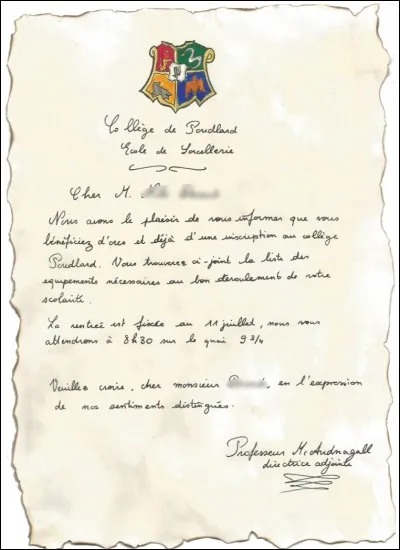 Collège de Poudlard
Ecole de Sorcellerie
Cher M.
Nous avons le plaisir de vous informer que vous
bénéficiez d'ores et déjà d'une inscription au collège
Poudlard. Vous trouverez ci-joint la liste des
equipements nécessaires au bon déroulement de votre
scolarité.
La rentreé est fixée au 11 juillet, nous vous
attendrons à 8h30 sur le quai 9 3/4
Veuillez croire, cher monsieur , en l'expression
de nos sentiments distingués.
Professeur Mc Audnagall
directrice adjointe